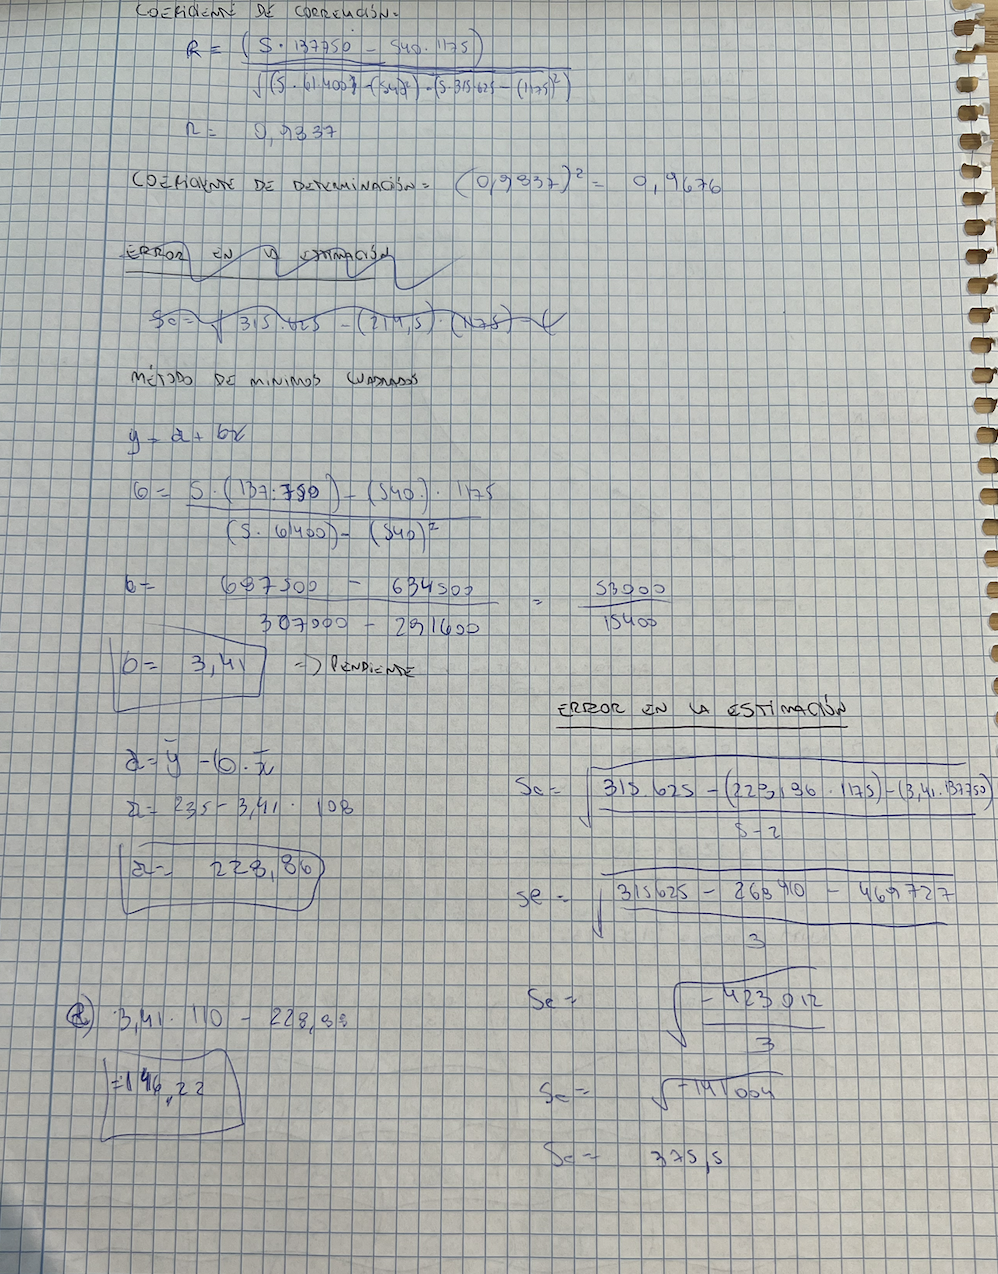 COEFICIENTE DE CORRELACIÓN=
R = (5 · 137750 - 540 · 1175)
√((5 · 61.400) - (540)² · (5 · 315.625 - (1175)²)
R = 0,9837
COEFICIENTE DE DETERMINACIÓN = (0,9837)² = 0,9676
ERROR EN LA ESTIMACIÓN
Se = √315.625 - (214,5) · (1175) - (
MÉTODO DE MINIMOS CUADRADOS
y = a + bx
b = 5 · (137.750) - (540) · 1175
(5 · 61400) - (540)²
b = 687500 - 634500 = 53000
307000 - 291600 15400
b = 3,41 => PENDIENTE
a = ȳ - b · x̄
a = 235 - 3,41 · 108
a = 223,86
2) 3,41 · 110 - 228,
= 146,22
ERROR EN LA ESTIMACIÓN
Se = √315.625 - (223,96 · 1175) - (3,41 · 137750)
5 - 2
Se = √315625 - 268910 - 469727
3
Se = √-423012
3
Se = √-141004
Se = 375,5